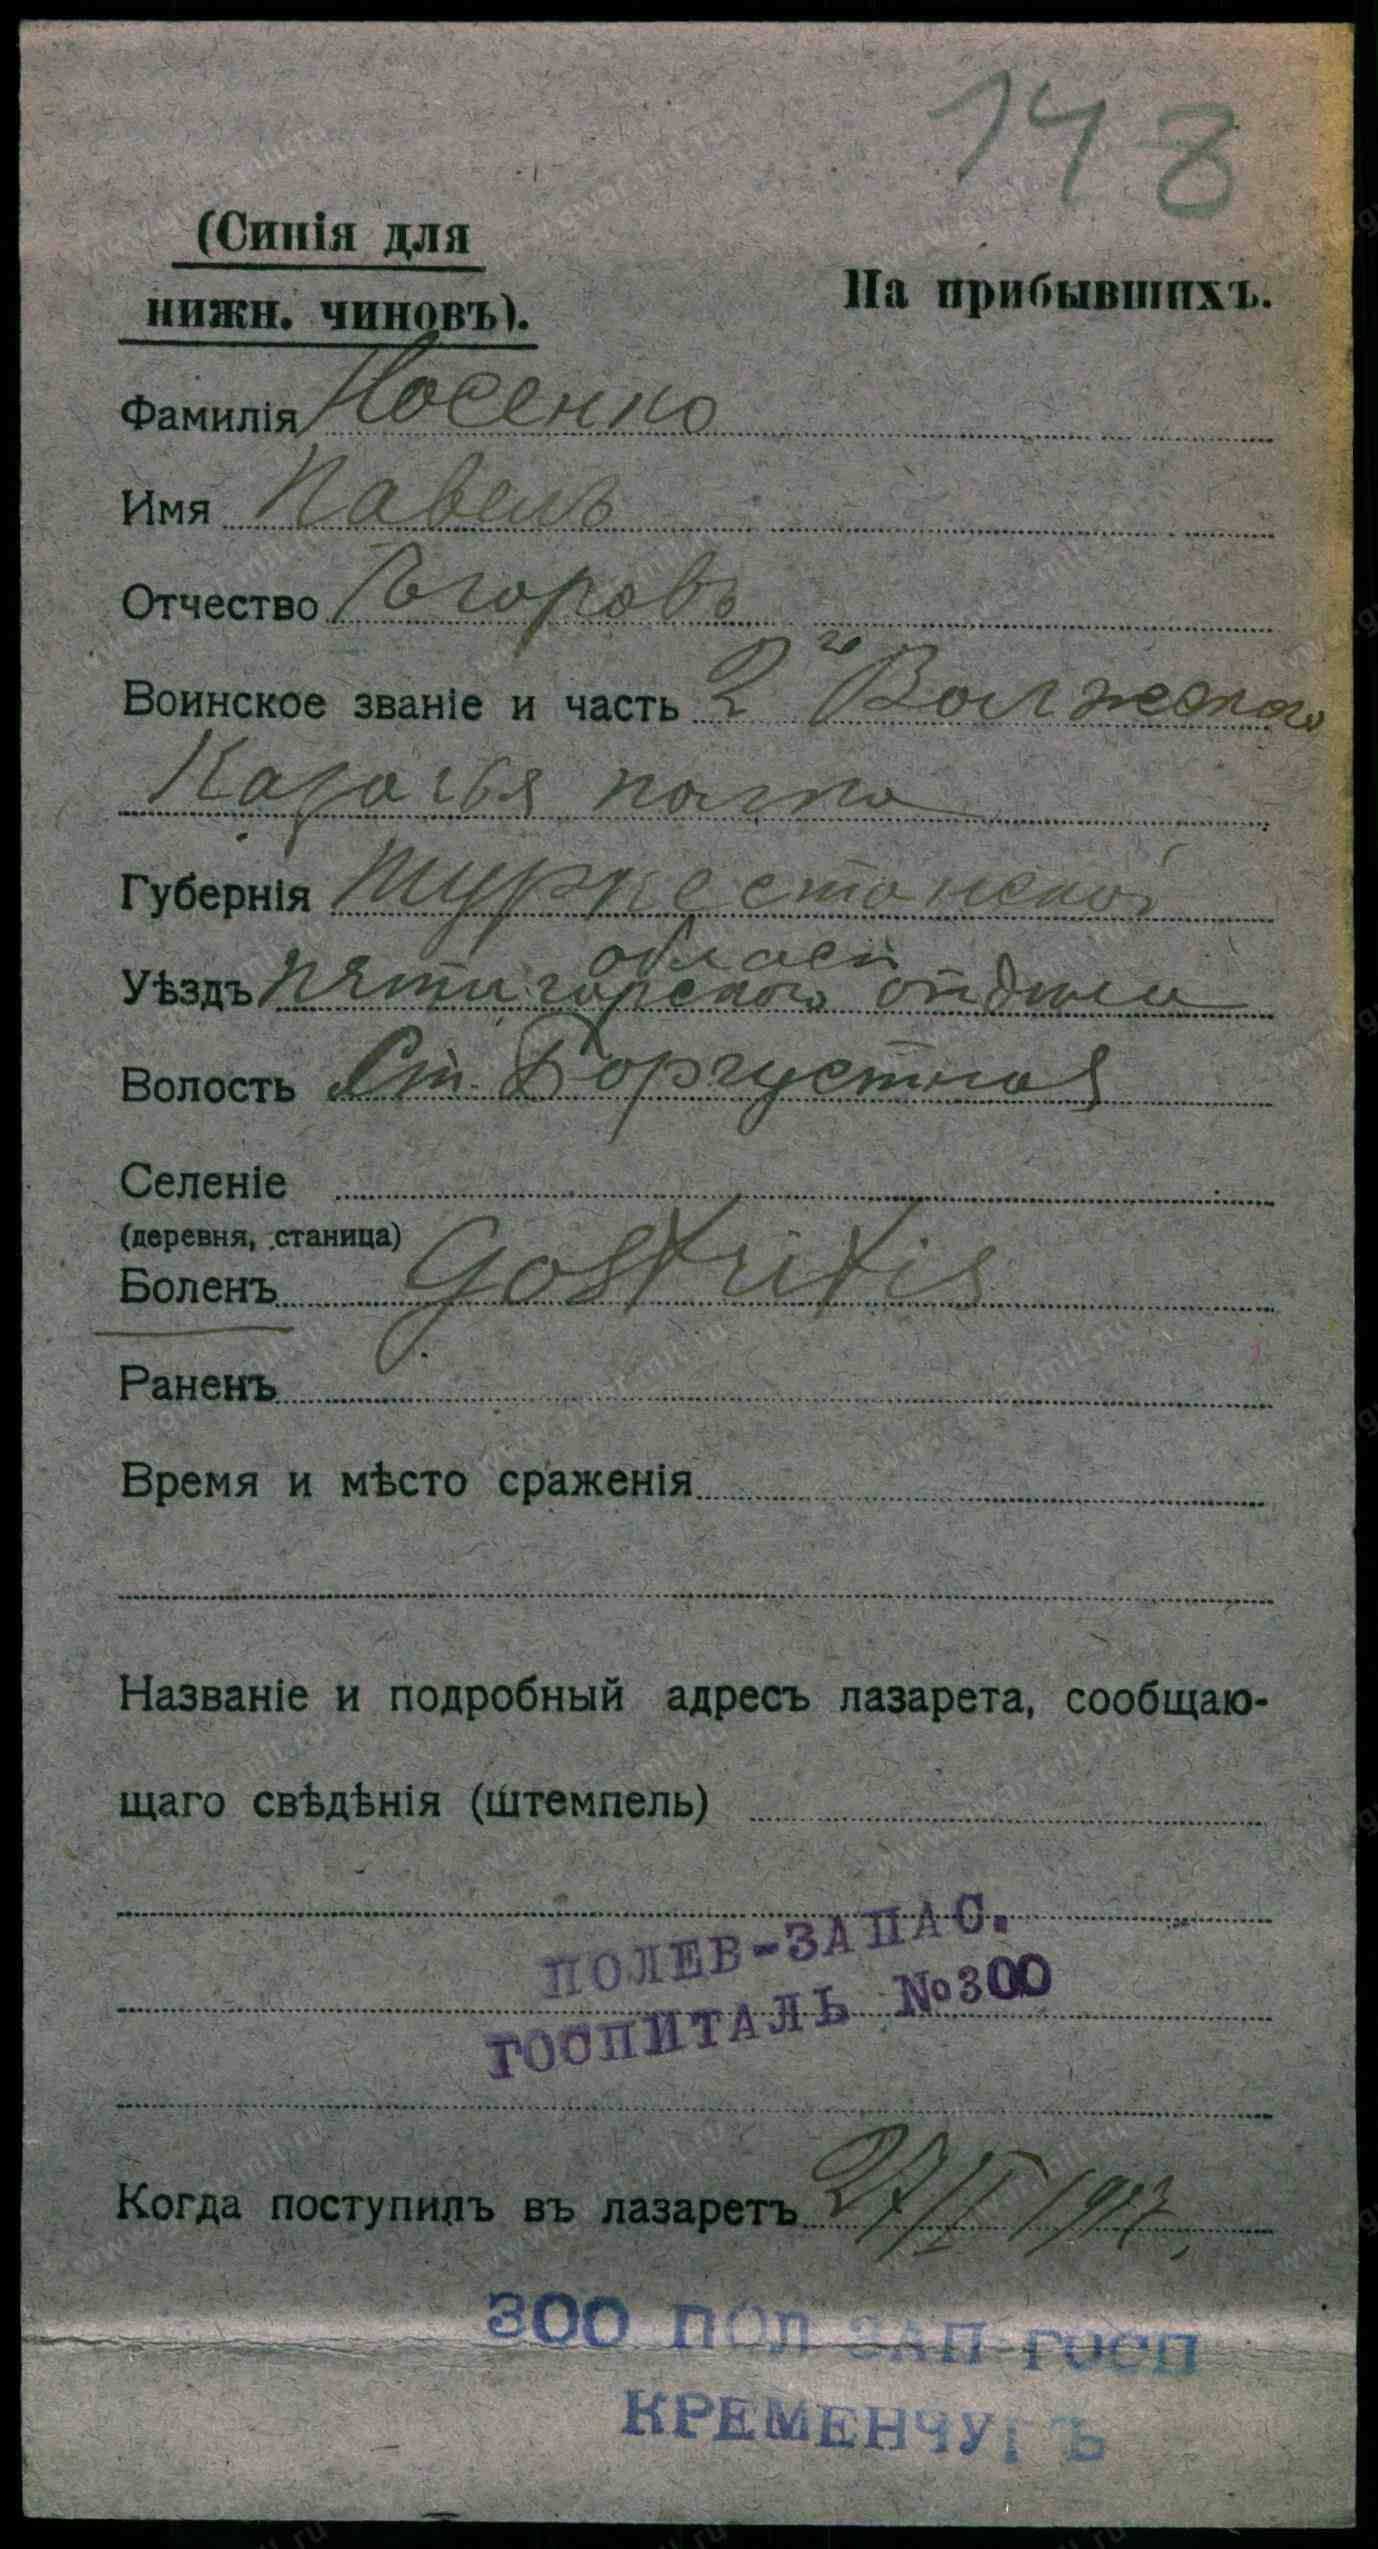 148
(Синія для
нижн. чиновъ).
На прибывшихъ.
Фамилія Носенко
Имя Павелъ
Отчество Егоровъ
Воинское званіе и часть 2го Волжскаго
Казачья полка
Губернія Туркестанской
област
Уѣздъ Пятигорскаго отдѣла
Волость Ст. Боргустная
Селеніе
(деревня, станица)
Боленъ Gastritis
Раненъ
Время и мѣсто сраженія
Названіе и подробный адресъ лазарета, сообщаю-
щаго свѣдѣнія (штемпель)
ПОЛЕВ-ЗАПАС.
ГОСПИТАЛЬ №300
Когда поступилъ въ лазаретъ 27/I 1917.
300 ПОЛ ЗАП ГОСП
КРЕМЕНЧУГЪ